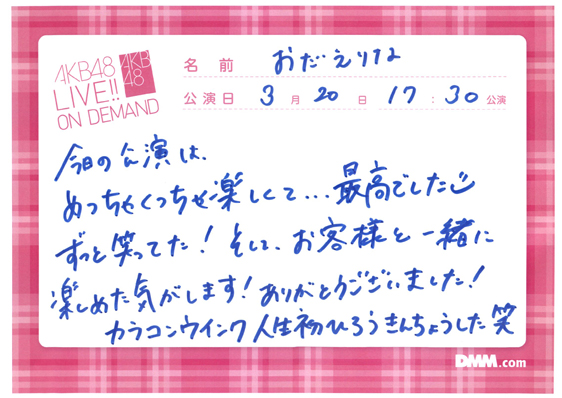 AKB48
LIVE!!
ON DEMAND
AKB
48
名前 おだえりな
公演日 3月20日 17:30公演
今日の公演は、
めっちゃくっちゃ楽しくて...最高でした
ずっと笑ってた！そして、お客様と一緒に
楽しめた気がします！ありがとうございました！
カラコンウインク人生初ひろうきんちょうした笑
DMM.com